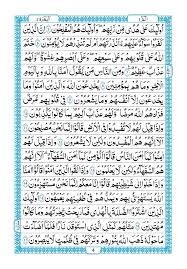 الٓمّٓ ١
البقرة ٢
أُولَٰئِكَ عَلَىٰ هُدًى مِّن رَّبِّهِمْ وَأُولَٰئِكَ هُمُ الْمُفْلِحُونَ إِنَّ الَّذِينَ
كَفَرُوا سَوَاءٌ عَلَيْهِمْ أَأَنذَرْتَهُمْ أَمْ لَمْ تُنذِرْهُمْ لَا يُؤْمِنُونَ خَتَمَ
اللَّهُ عَلَىٰ قُلُوبِهِمْ وَعَلَىٰ سَمْعِهِمْ وَعَلَىٰ أَبْصَارِهِمْ غِشَاوَةٌ وَلَهُمْ
عَذَابٌ عَظِيمٌ وَمِنَ النَّاسِ مَن يَقُولُ آمَنَّا بِاللَّهِ وَبِالْيَوْمِ
الْآخِرِ وَمَا هُم بِمُؤْمِنِينَ يُخَادِعُونَ اللَّهَ وَالَّذِينَ آمَنُوا وَمَا
يَخْدَعُونَ إِلَّا أَنفُسَهُمْ وَمَا يَشْعُرُونَ فِي قُلُوبِهِم مَّرَضٌ
فَزَادَهُمُ اللَّهُ مَرَضًا وَلَهُمْ عَذَابٌ أَلِيمٌ بِمَا كَانُوا يَكْذِبُونَ
وَإِذَا قِيلَ لَهُمْ لَا تُفْسِدُوا فِي الْأَرْضِ قَالُوا إِنَّمَا نَحْنُ مُصْلِحُونَ
أَلَا إِنَّهُمْ هُمُ الْمُفْسِدُونَ وَلَٰكِن لَّا يَشْعُرُونَ وَإِذَا قِيلَ لَهُمْ
آمِنُوا كَمَا آمَنَ النَّاسُ قَالُوا أَنُؤْمِنُ كَمَا آمَنَ السُّفَهَاءُ أَلَا إِنَّهُمْ
هُمُ السُّفَهَاءُ وَلَٰكِن لَّا يَعْلَمُونَ وَإِذَا لَقُوا الَّذِينَ آمَنُوا قَالُوا آمَنَّا
وَإِذَا خَلَوْا إِلَىٰ شَيَاطِينِهِمْ قَالُوا إِنَّا مَعَكُمْ إِنَّمَا نَحْنُ مُسْتَهْزِءُونَ
اللَّهُ يَسْتَهْزِئُ بِهِمْ وَيَمُدُّهُمْ فِي طُغْيَانِهِمْ يَعْمَهُونَ أُولَٰئِكَ
الَّذِينَ اشْتَرَوُا الضَّلَالَةَ بِالْهُدَىٰ فَمَا رَبِحَت تِّجَارَتُهُمْ وَمَا كَانُوا
مُهْتَدِينَ مَثَلُهُمْ كَمَثَلِ الَّذِي اسْتَوْقَدَ نَارًا فَلَمَّا أَضَاءَتْ
مَا حَوْلَهُ ذَهَبَ اللَّهُ بِنُورِهِمْ وَتَرَكَهُمْ فِي ظُلُمَاتٍ لَّا يُبْصِرُونَ